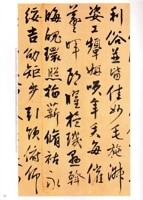 利俗並皆佳妙毛施淑
姿工顰妍咲年矢每催
羲暉朗曜璇璣懸斡
晦魄環照指薪脩祜永
綏吉劭矩步引領俯仰